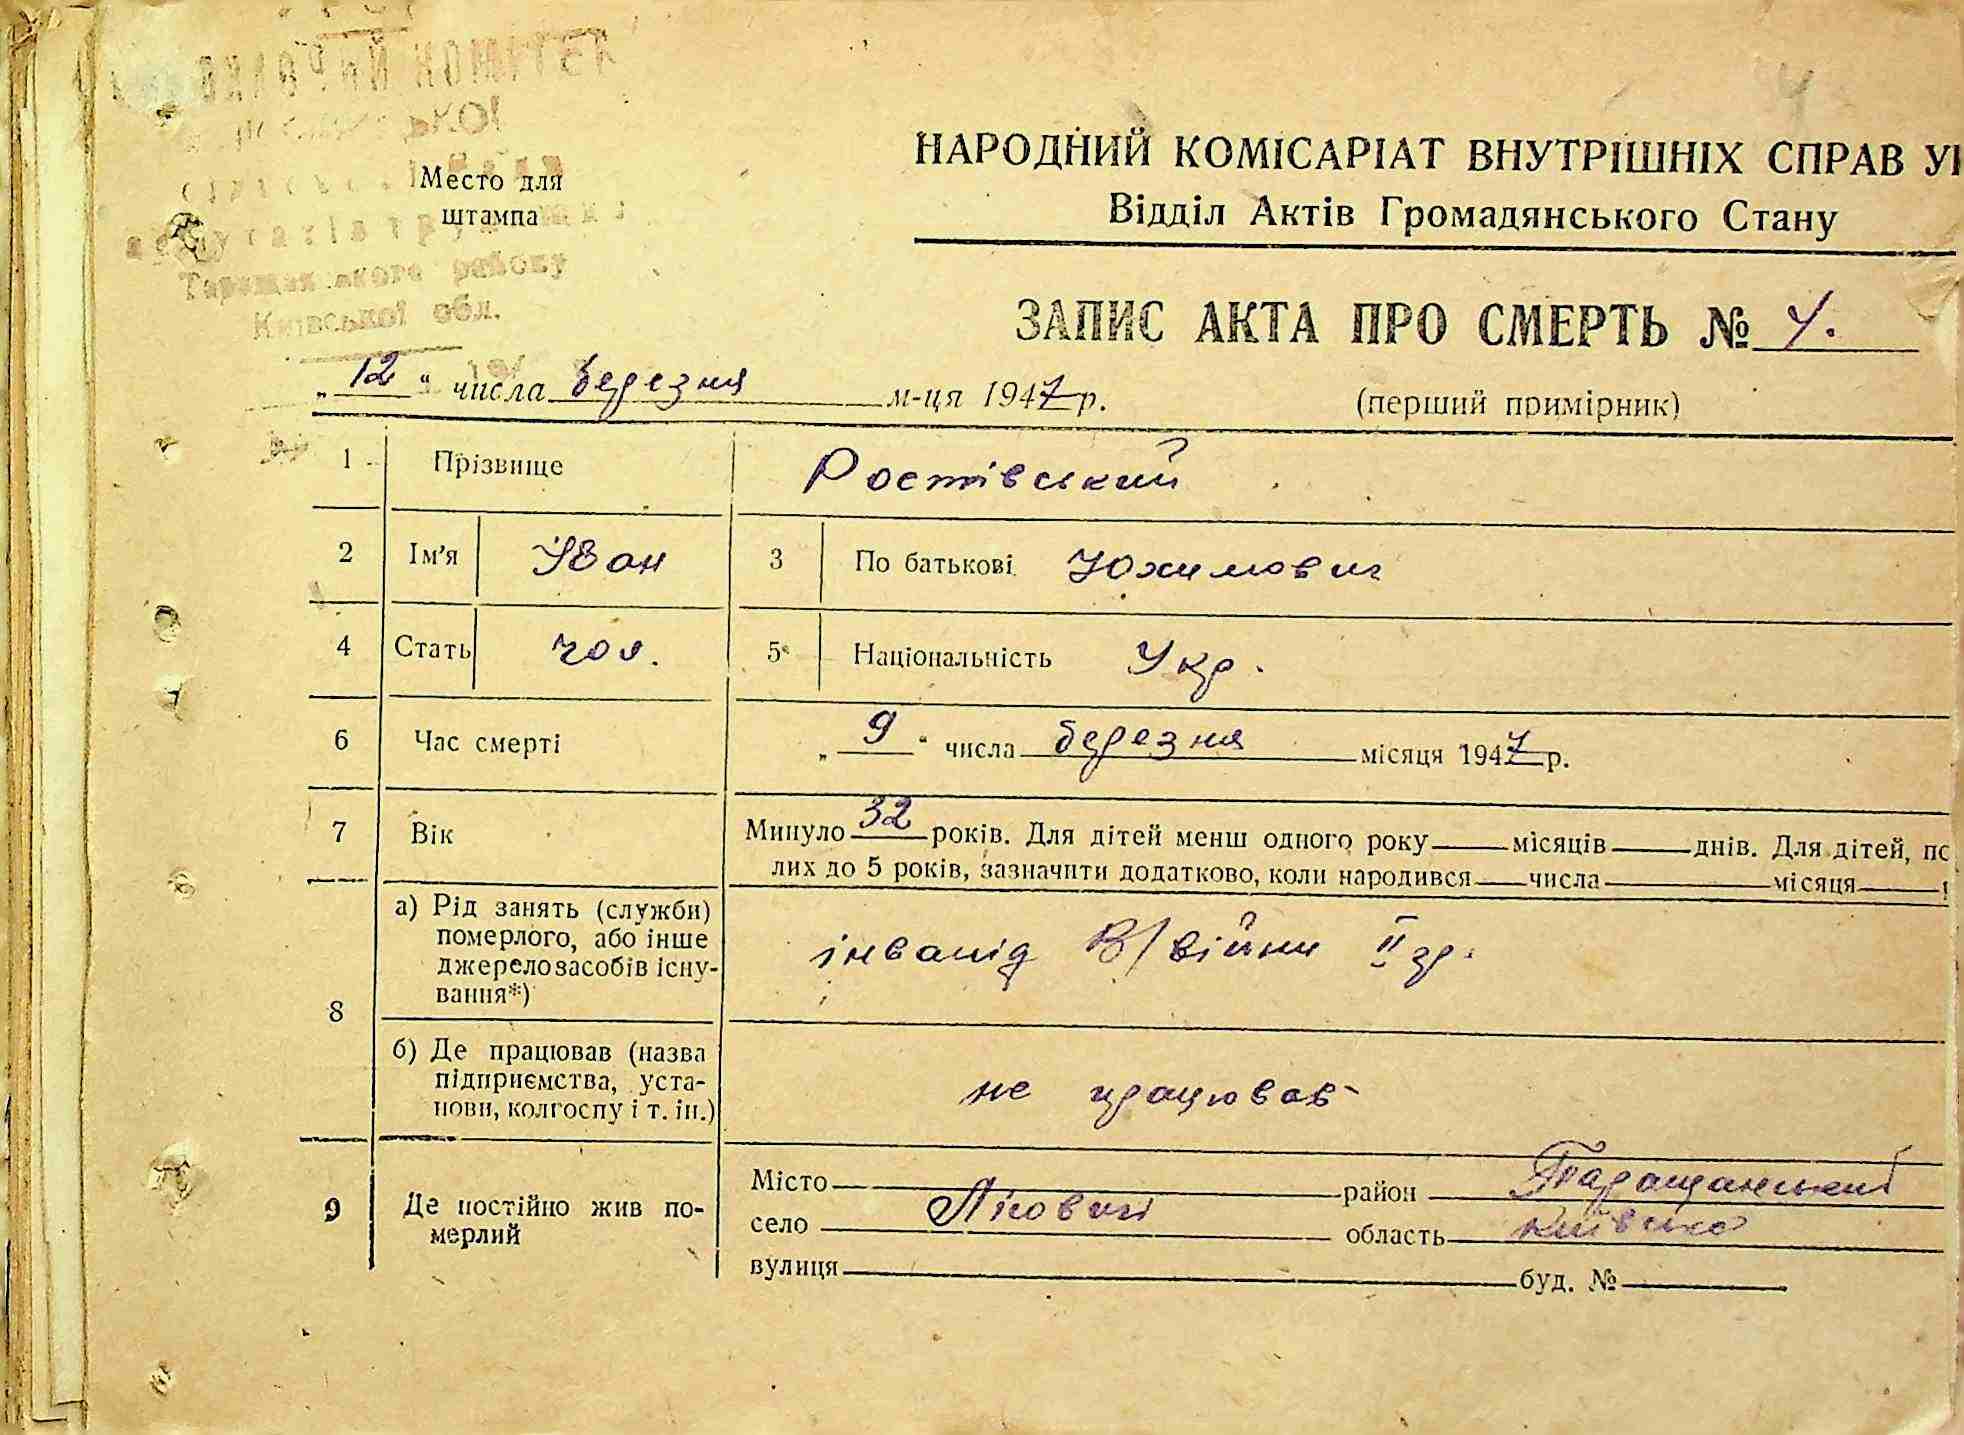 4
ВИКОНАВЧИЙ КОМІТЕТ
Таращанського району
Київської обл.
Место для
штампа
НАРОДНИЙ КОМІСАРІАТ ВНУТРІШНІХ СПРАВ
Відділ Актів Громадянського Стану
ЗАПИС АКТА ПРО СМЕРТЬ № 4.
„12“ числа березня м-ця 1947 р.
(перший примірник)
1 Прізвище Ростівський
2 Ім’я Іван 3 По батькові Юхимович
4 Стать чол. 5 Національність Укр.
6 Час смерті „9“ числа березня місяця 1947 р.
7 Вік Минуло 32 років. Для дітей менш одного року місяців днів. Для дітей, по
лих до 5 років, зазначити додатково, коли народився числа місяця
8 а) Рід занять (служби)
померлого, або інше
джерело засобів існу-
вання*)
інвалід В/війни II гр.
б) Де працював (назва
підприємства, уста-
нови, колгоспу і т. ін.)
не працював
9 Де постійно жив по-
мерлий
Місто район Таращанський
село Лісовичі область Київська
вулиця буд. №